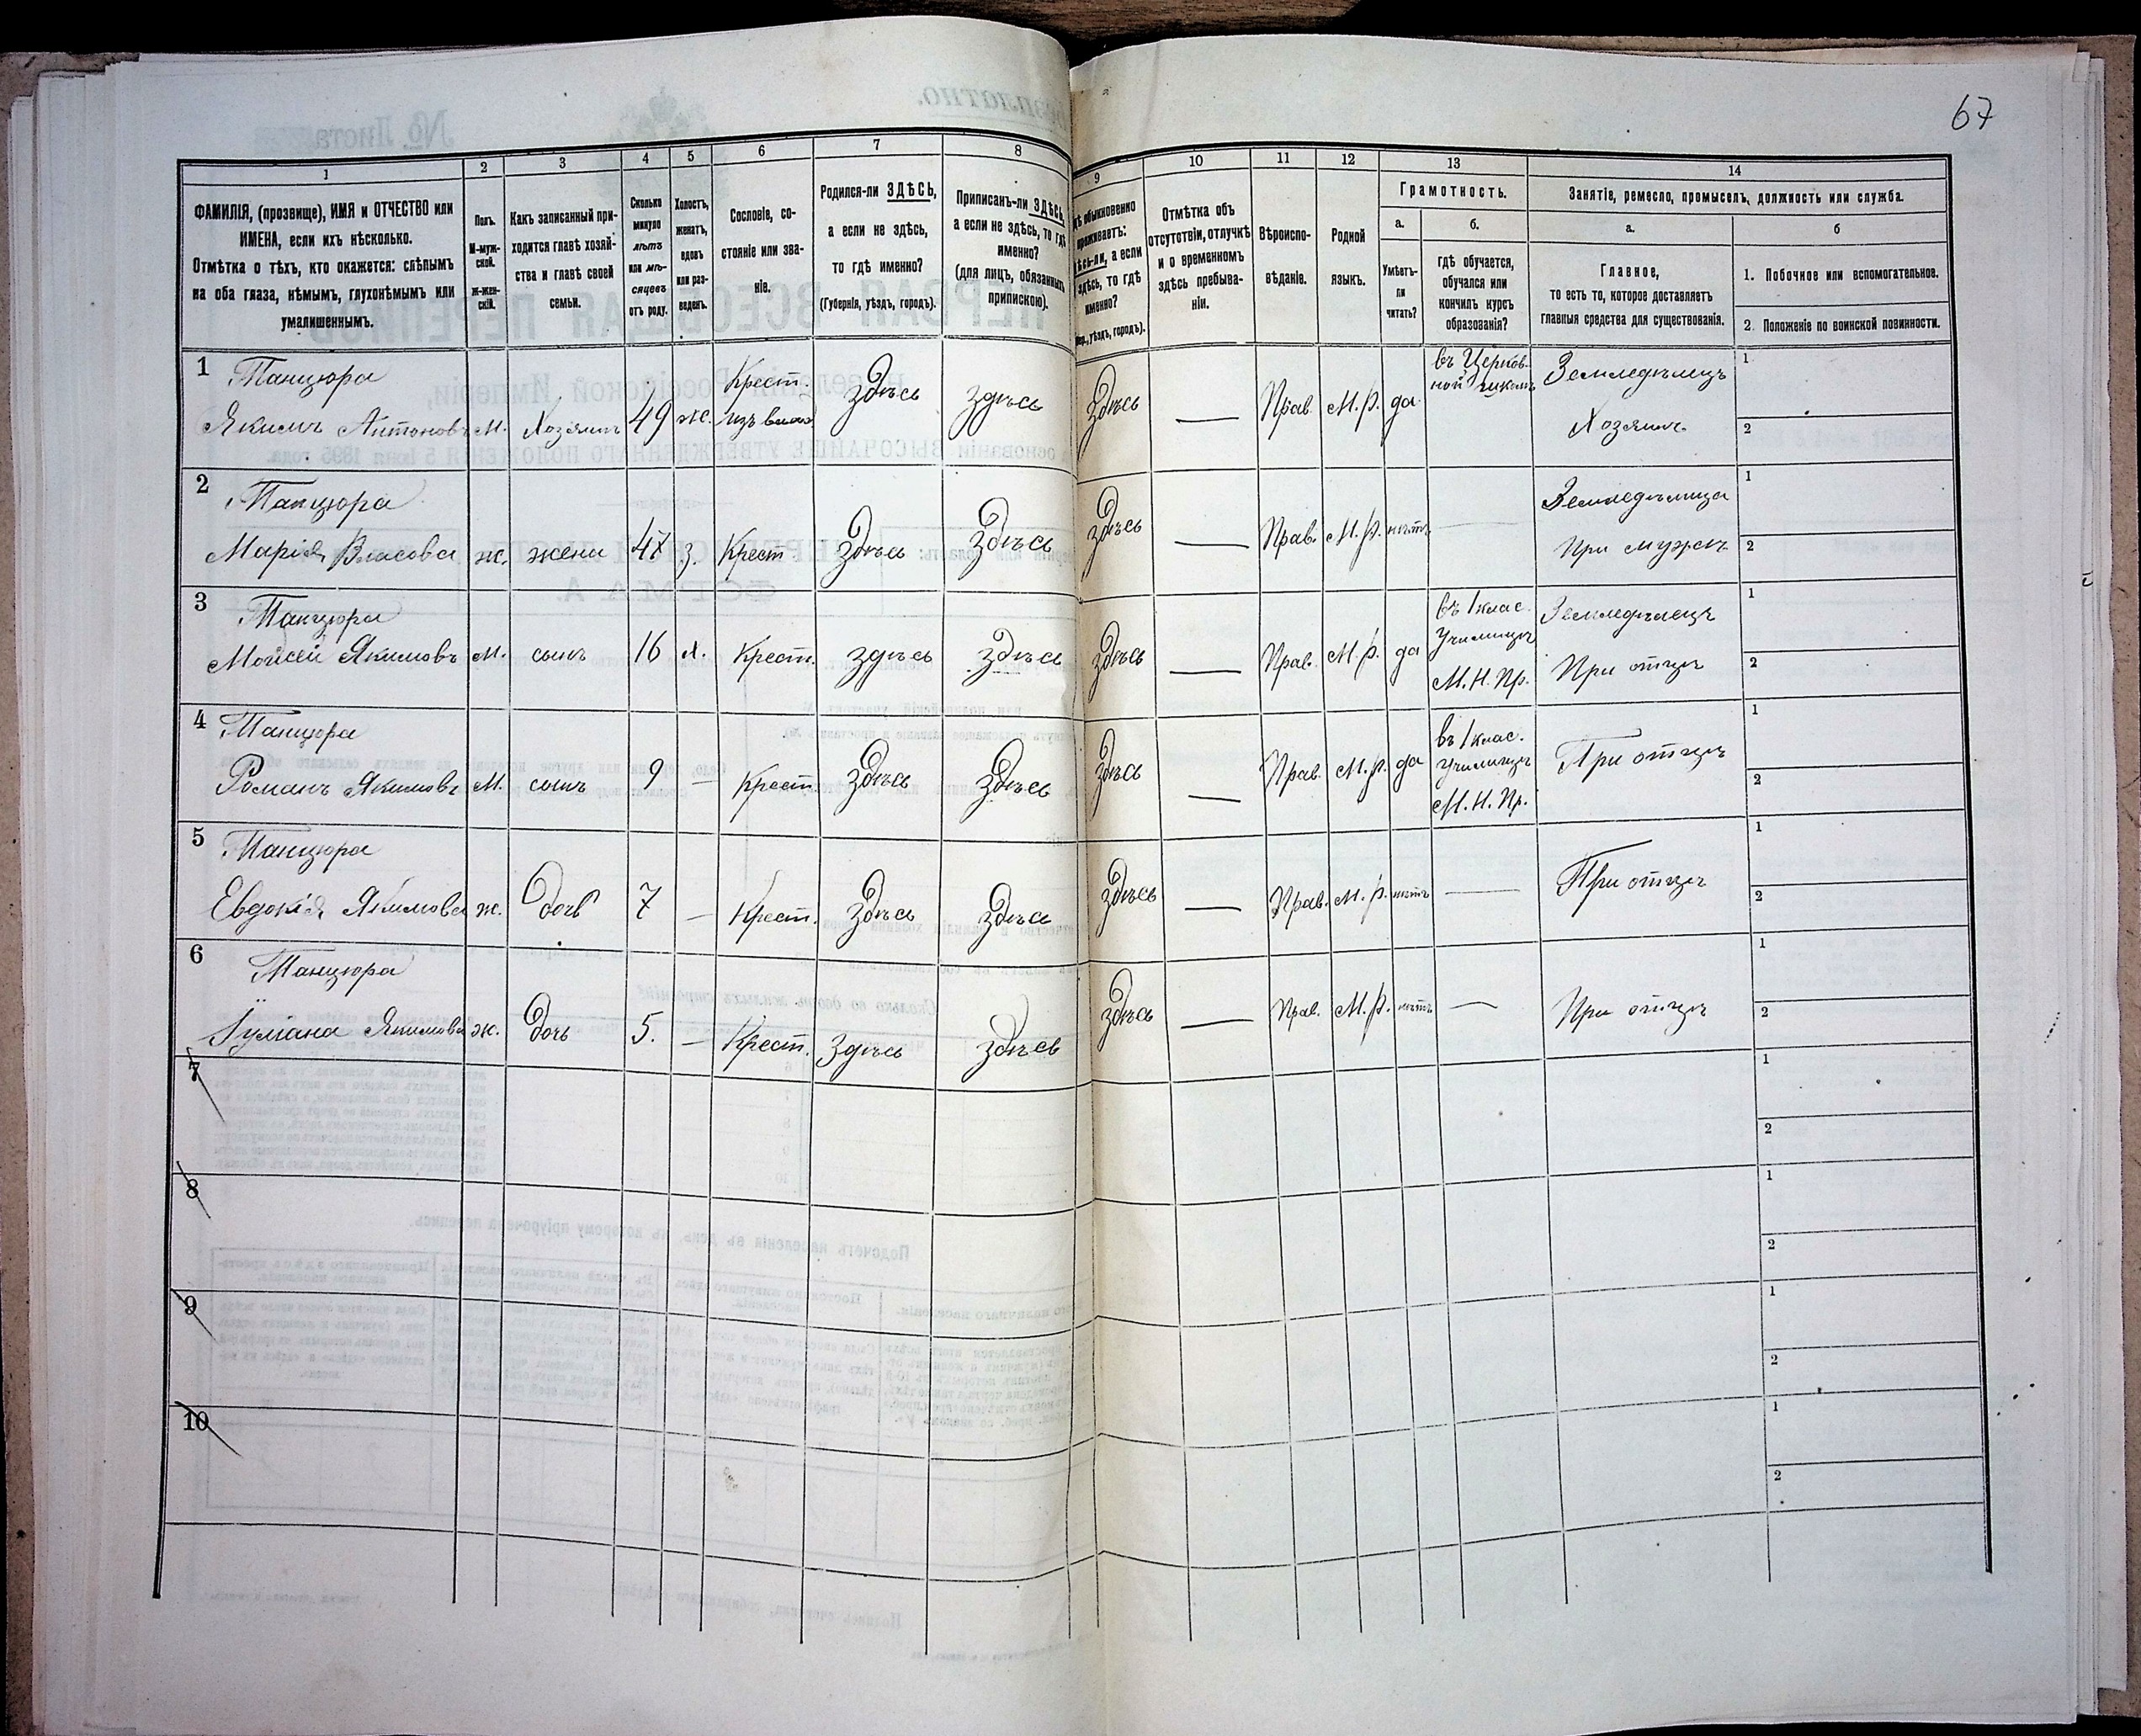 67
1 2 3 4 5 6 7 8 9 10 11 12 13 14
ФАМИЛІЯ, (прозвище), ИМЯ и ОТЧЕСТВО или
ИМЕНА, если ихъ нѣсколько.
Отмѣтка о тѣхъ, кто окажется: слѣпымъ
на оба глаза, нѣмымъ, глухонѣмымъ или
умалишеннымъ.
Полъ.
М-муж-
ской.
ж-жен-
скій.
Какъ записанный при-
ходится главѣ хозяй-
ства и главѣ своей
семьи.
Сколько
минуло
лѣтъ
или мѣ-
сяцевъ
отъ роду.
Холостъ,
женатъ,
вдовъ
или раз-
веденъ.
Сословіе, со-
стояніе или зва-
ніе.
Родился-ли ЗДѢСЬ,
а если не здѣсь,
то гдѣ именно?
(Губернія, уѣздъ, городъ).
Приписанъ-ли ЗДѢСЬ,
а если не здѣсь, то гдѣ
именно?
(для лицъ, обязанныхъ
припискою).
обыкновенно
проживаетъ:
а если
здѣсь, то гдѣ
именно?
уѣздъ, городъ).
Отмѣтка объ
отсутствіи, отлучкѣ
и о временномъ
здѣсь пребыва-
ніи.
Вѣроиспо-
вѣданіе.
Родной
языкъ.
Грамотность.
а. б.
Умѣетъ-
ли
читать?
гдѣ обучается,
обучался или
кончилъ курсъ
образованія?
Занятіе, ремесло, промыселъ, должность или служба.
а. б
Главное,
то есть то, которое доставляетъ
главныя средства для существованія.
1. Побочное или вспомогательное.
2. Положеніе по воинской повинности.
1 Танцюра Крест. въ Церков- Земледѣлецъ 1
Якимъ Антоновъ М. Хозяинъ 49 ж. изъ здѣсь здѣсь здѣсь — Прав. М.р. да. ной школѣ Хозяинъ 2
2 Танцюра Земледѣлица 1
Марія Власова ж. жена 47 з. Крест. Здѣсь Здѣсь здѣсь — Прав. М.р. нѣтъ — При мужѣ 2
3 Танцюра въ 1 клас. Земледѣлецъ 1
Мойсей Якимовъ М. сынъ 16 х. Крест. здѣсь здѣсь здѣсь — Прав. М.р. да Училищѣ При отцѣ 2
М.Н.Пр.
4 Танцюра въ 1 клас. 1
Романъ Якимовъ М. сынъ 9 — Крест. Здѣсь Здѣсь Здѣсь — Прав. М.р. да училищѣ При отцѣ 2
М.Н.Пр.
5 Танцюра 1
Евдокія Якимова ж. дочь 7 — Крест. Здѣсь Здѣсь здѣсь — Прав. М.р. нѣтъ — При отцѣ 2
6 Танцюра 1
Іуліана Якимова ж. дочь 5. — Крест. Здѣсь здѣсь здѣсь — Прав. М.р. нѣтъ — При отцѣ 2
7 1
2
8 1
2
9 1
2
10 1
2